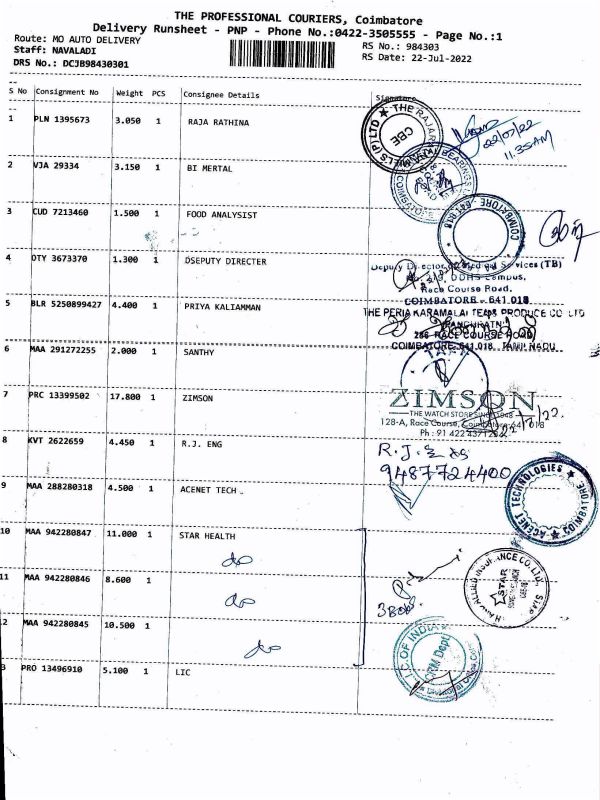 THE PROFESSIONAL COURIERS, Coimbatore
Delivery Runsheet - PNP - Phone No.:0422-3505555 - Page No.:1
Route: MO AUTO DELIVERY
RS No.: 984303
Staff: NAVALADI
RS Date: 22-Jul-2022
DRS No.: DCJB98430301
S No Consignment No Weight PCS Consignee Details Signature
1 PLN 1395673 3.050 1 RAJA RATHINA
22/07/22
11.35AM
2 VJA 29334 3.150 1 BI MERTAL
3 CUD 7213460 1.500 1 FOOD ANALYSIST
COIMBATORE - 641 018
4 OTY 3673370 1.300 1 DSEPUTY DIRECTER
Deputy Director of Medical Services (TB)
DDHS Campus,
Race Course Road,
COIMBATORE - 641 018
5 BLR 5250899427 4.400 1 PRIYA KALIAMMAN
THE PERIA KARAMALAI TEA & PRODUCE CO LTD
286 RACE COURSE ROAD
COIMBATORE 641 018 TAMIL NADU
6 MAA 291272255 2.000 1 SANTHY
7 PRC 13399502 17.800 1 ZIMSON
ZIMSON
THE WATCH STORE SINCE 1948
128-A, Race Course, Coimbatore-641 018
8 KVT 2622659 4.450 1 R.J. ENG
9487724400
9 MAA 288280318 4.500 1 ACENET TECH
ACENET TECHNOLOGIES
COIMBATORE
10 MAA 942280847 11.000 1 STAR HEALTH
do
11 MAA 942280846 8.600 1
do
STAR
2 MAA 942280845 10.500 1
do
L.I.C. OF INDIA
CRM Dept
3 PRO 13496910 5.100 1 LIC